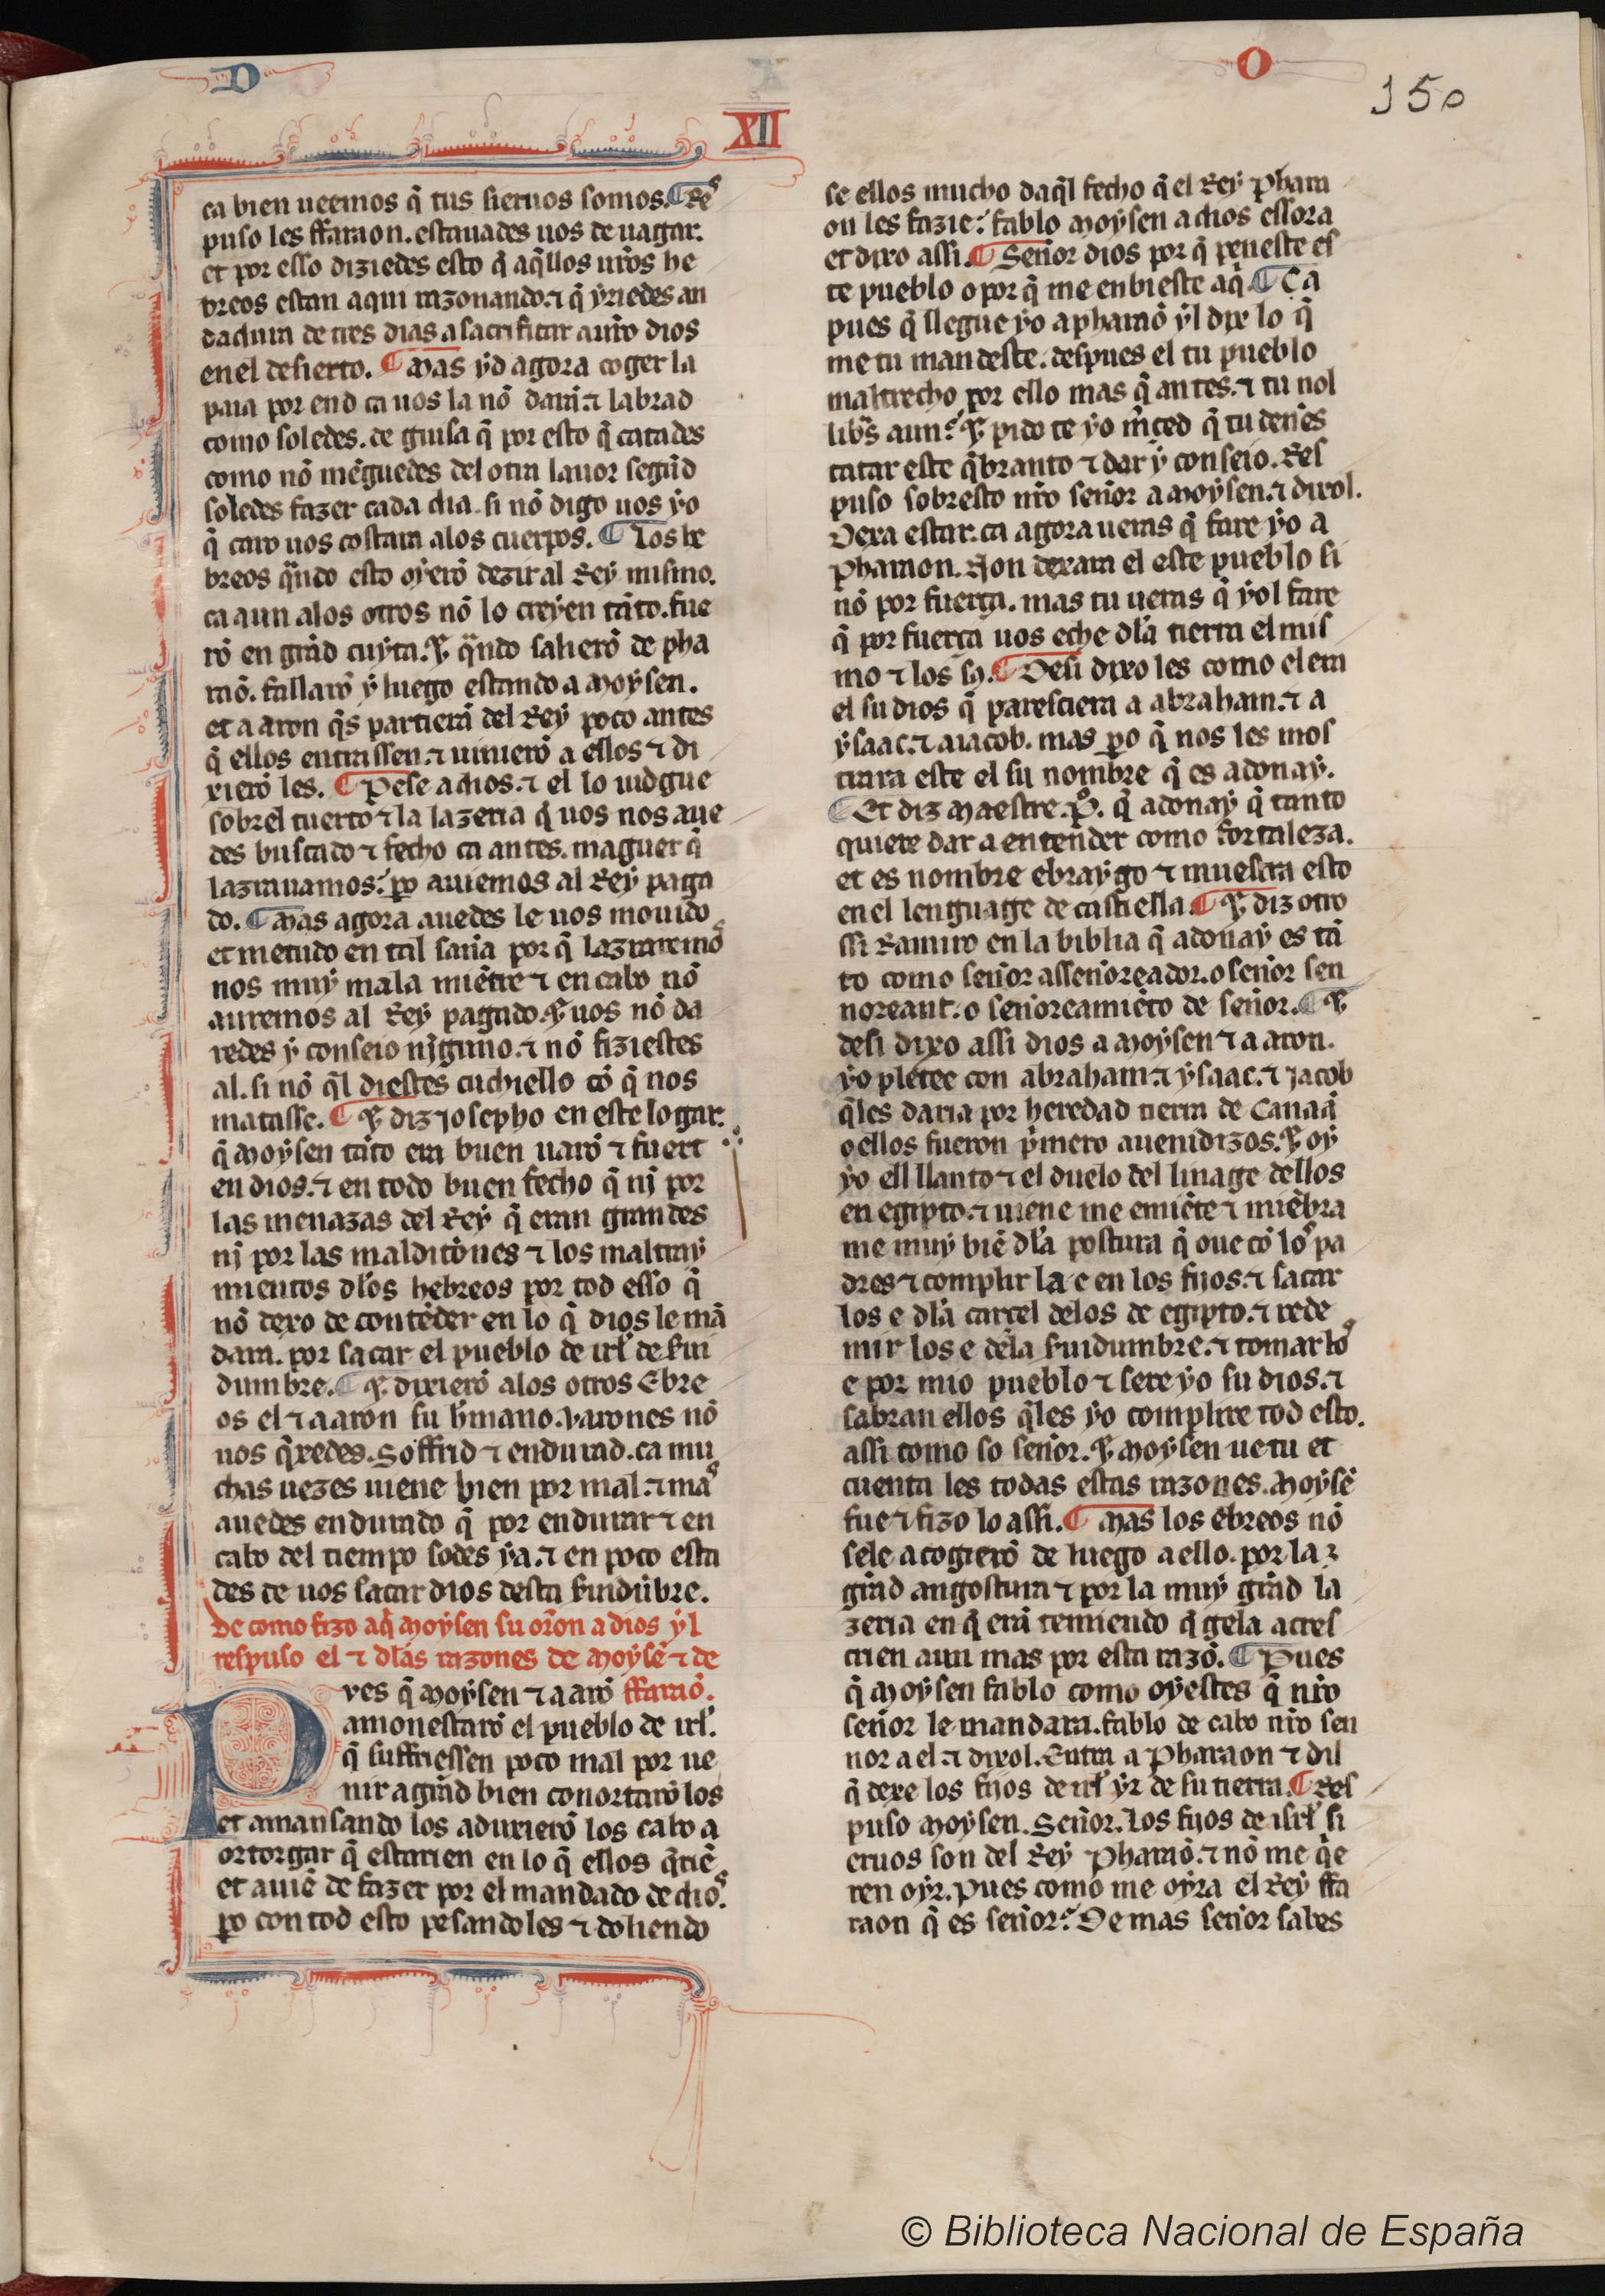 D
O
XII
150
ca bien ueemos q̃ tus sieruos somos. ¶ Res
puso les ffaraon. estauades uos de uagar.
et por esso diziedes esto q̃ aq̃llos uros he
breos estan aqui razonando. ⁊ q̃ yriedes an
dadura de tres dias a sacrificar a uro dios
en el desierto. ¶ Mas yd agora coger la
paia por end ca uos la nõ darã. ⁊ labrad
como soledes. de guisa q̃ por esto q̃ catades
como nõ mẽguedes del otra lauor segũd
soledes fazer cada dia. si nõ digo uos yo
q̃ caro uos costara a los cuerpos. ¶ Los he
breos q̃ndo esto oyerõ dezir al Rey mismo.
ca aun a los otros nõ lo creyen tãto. fue
rõ en grãd cuyta. ⁊ q̃ndo salierõ de pha
raõ. fallarõ y luego estando a Moysen.
et a aron q̃s partierã del Rey poco antes
q̃ ellos entrassen. ⁊ uinierõ a ellos ⁊ di
xierõ les. ¶ Pese a dios. ⁊ el lo iudgue
sobrel tuerto ⁊ la lazeria q̃ uos nos aue
des buscado ⁊ fecho ca antes. maguer q̃
lazrauamos. po auiemos al Rey paga
do. ¶ Mas agora auedes le uos mouido
et metudo en tal saña por q̃ lazraremos
nos muy mala miẽtre ⁊ en cabo nõ
auremos al Rey pagado. ⁊ uos nõ da
redes y conseio nĩguno. ⁊ nõ fiziestes
al. si nõ q̃l diestes cuchiello cõ q̃ nos
matasse. ¶ ⁊ diz Josepho en este logar.
q̃ Moysen tãto era buen uarõ ⁊ fuert
en dios. ⁊ en todo buen fecho q̃ nj por
las menazas del Rey q̃ eran grandes
nj por las malditiones ⁊ los maltray
mientos dlos hebreos por tod esso q̃
nõ dexo de contẽder en lo q̃ dios le mã
dara. por sacar el pueblo de irl de serui
dumbre. ¶ ⁊ dixierõ a los otros Ebre
os el ⁊ aaron su hmano. Varones nõ
uos q̃xedes. Soffrid ⁊ endurad. ca mu
chas uezes uiene bien por mal. ⁊ mas
auedes endurado q̃ por endurar ⁊ en
cabo del tiempo sodes ya. ⁊ en poco esta
des de uos sacar dios desta seruidũbre.
De como fizo aq̃ Moysen su oron a dios yl
respuso el ⁊ dlas razones de Moysẽ ⁊ de
ffaraõ.
Pves q̃ Moysen ⁊ aarõ
amonestarõ el pueblo de irl.
q̃ suffriessen poco mal por ue
nir a grãd bien conortarõ los
et amansando los aduxierõ los cabo a
ortorgar q̃ estarien en lo q̃ ellos q̃riẽ
et auiẽ de fazer por el mandado de dios.
po con tod esto pesandoles ⁊ doliendo
se ellos mucho daq̃l fecho q̃ el Rey phara
on les fazie. fablo Moysen a dios essora
et dixo assi. ¶ Señor dios por q̃ peneste es
te pueblo o por q̃ me enbieste aq̃. ¶ Ca
pues q̃ llegue yo a pharaõ yl dixe lo q̃
me tu mandeste. despues el tu pueblo
maltrecho por ello mas q̃ antes. ⁊ tu nol
libres aun. ⁊ pido te yo mçed q̃ tu deñes
catar este q̃branto ⁊ dar y conseio. Res
puso sobresto nro señor a Moysen. ⁊ dixol.
Dexa estar. ca agora ueras q̃ fare yo a
Pharaon. Non dexara el este pueblo si
nõ por fuerça. mas tu ueras q̃ yol fare
q̃ por fuerça uos eche dla tierra el mis
mo ⁊ los sos. ¶ Desi dixo les como el era
el su dios q̃ paresciera a abraham. ⁊ a
ysaac. ⁊ a iacob. mas po q̃ nos les mos
trara este el su nombre q̃ es adonay.
¶ Et diz Maestre .Pº. q̃ adonay q̃ tanto
quiere dar a entender como fortaleza.
et es nombre ebraygo ⁊ muestra esto
en el lenguage de castiella. ¶ ⁊ diz otro
ssi Ramiro en la biblia q̃ adonay es tã
to como señor assenoreador. o señor sen
noreant. o señoreamiẽto de señor. ¶ ⁊
desi dixo assi dios a Moysen ⁊ a aron.
yo pleteé con abraham. ⁊ ysaac. ⁊ Jacob
q̃les daria por heredad tierra de Canaã
o ellos fueron pmero auenidizos. ⁊ oy
yo ell llanto ⁊ el duelo del linage dellos
en egipto. ⁊ uiene me emiẽte ⁊ miẽbra
me muy biẽ dla postura q̃ oue cõ los pa
dres ⁊ complir la e en los fijos. ⁊ sacar
los e dla carcel delos de egipto. ⁊ rede
mir los e dela seruidumbre. ⁊ tomar los
e por mio pueblo ⁊ sere yo su dios. ⁊
sabran ellos q̃les yo complire tod esto.
assi como so señor. ⁊ Moysen ue tu et
cuenta les todas estas razones. Moysẽ
fue ⁊ fizo lo assi. ¶ Mas los ebreos nõ
sele acogierõ de luego a ello. por la
grãd angostura ⁊ por la muy grãd la
zeria en q̃ erã temiendo q̃ gela acres
crien aun mas por esta razõ. ¶ Pues
q̃ Moysen fablo como oyestes q̃ nro
señor le mandara. fablo de cabo nro sen
nor a el ⁊ dixol. Entra a Pharaon ⁊ dil
q̃ dexe los fijos de irl yr de su tierra. ¶ Res
puso Moysen. Señor. Los fijos de isrl si
eruos son del Rey Pharaõ. ⁊ nõ me q̃e
ren oyr. pues como me oyra el Rey ffa
raon q̃ es señor. Demas señor sabes
© Biblioteca Nacional de España